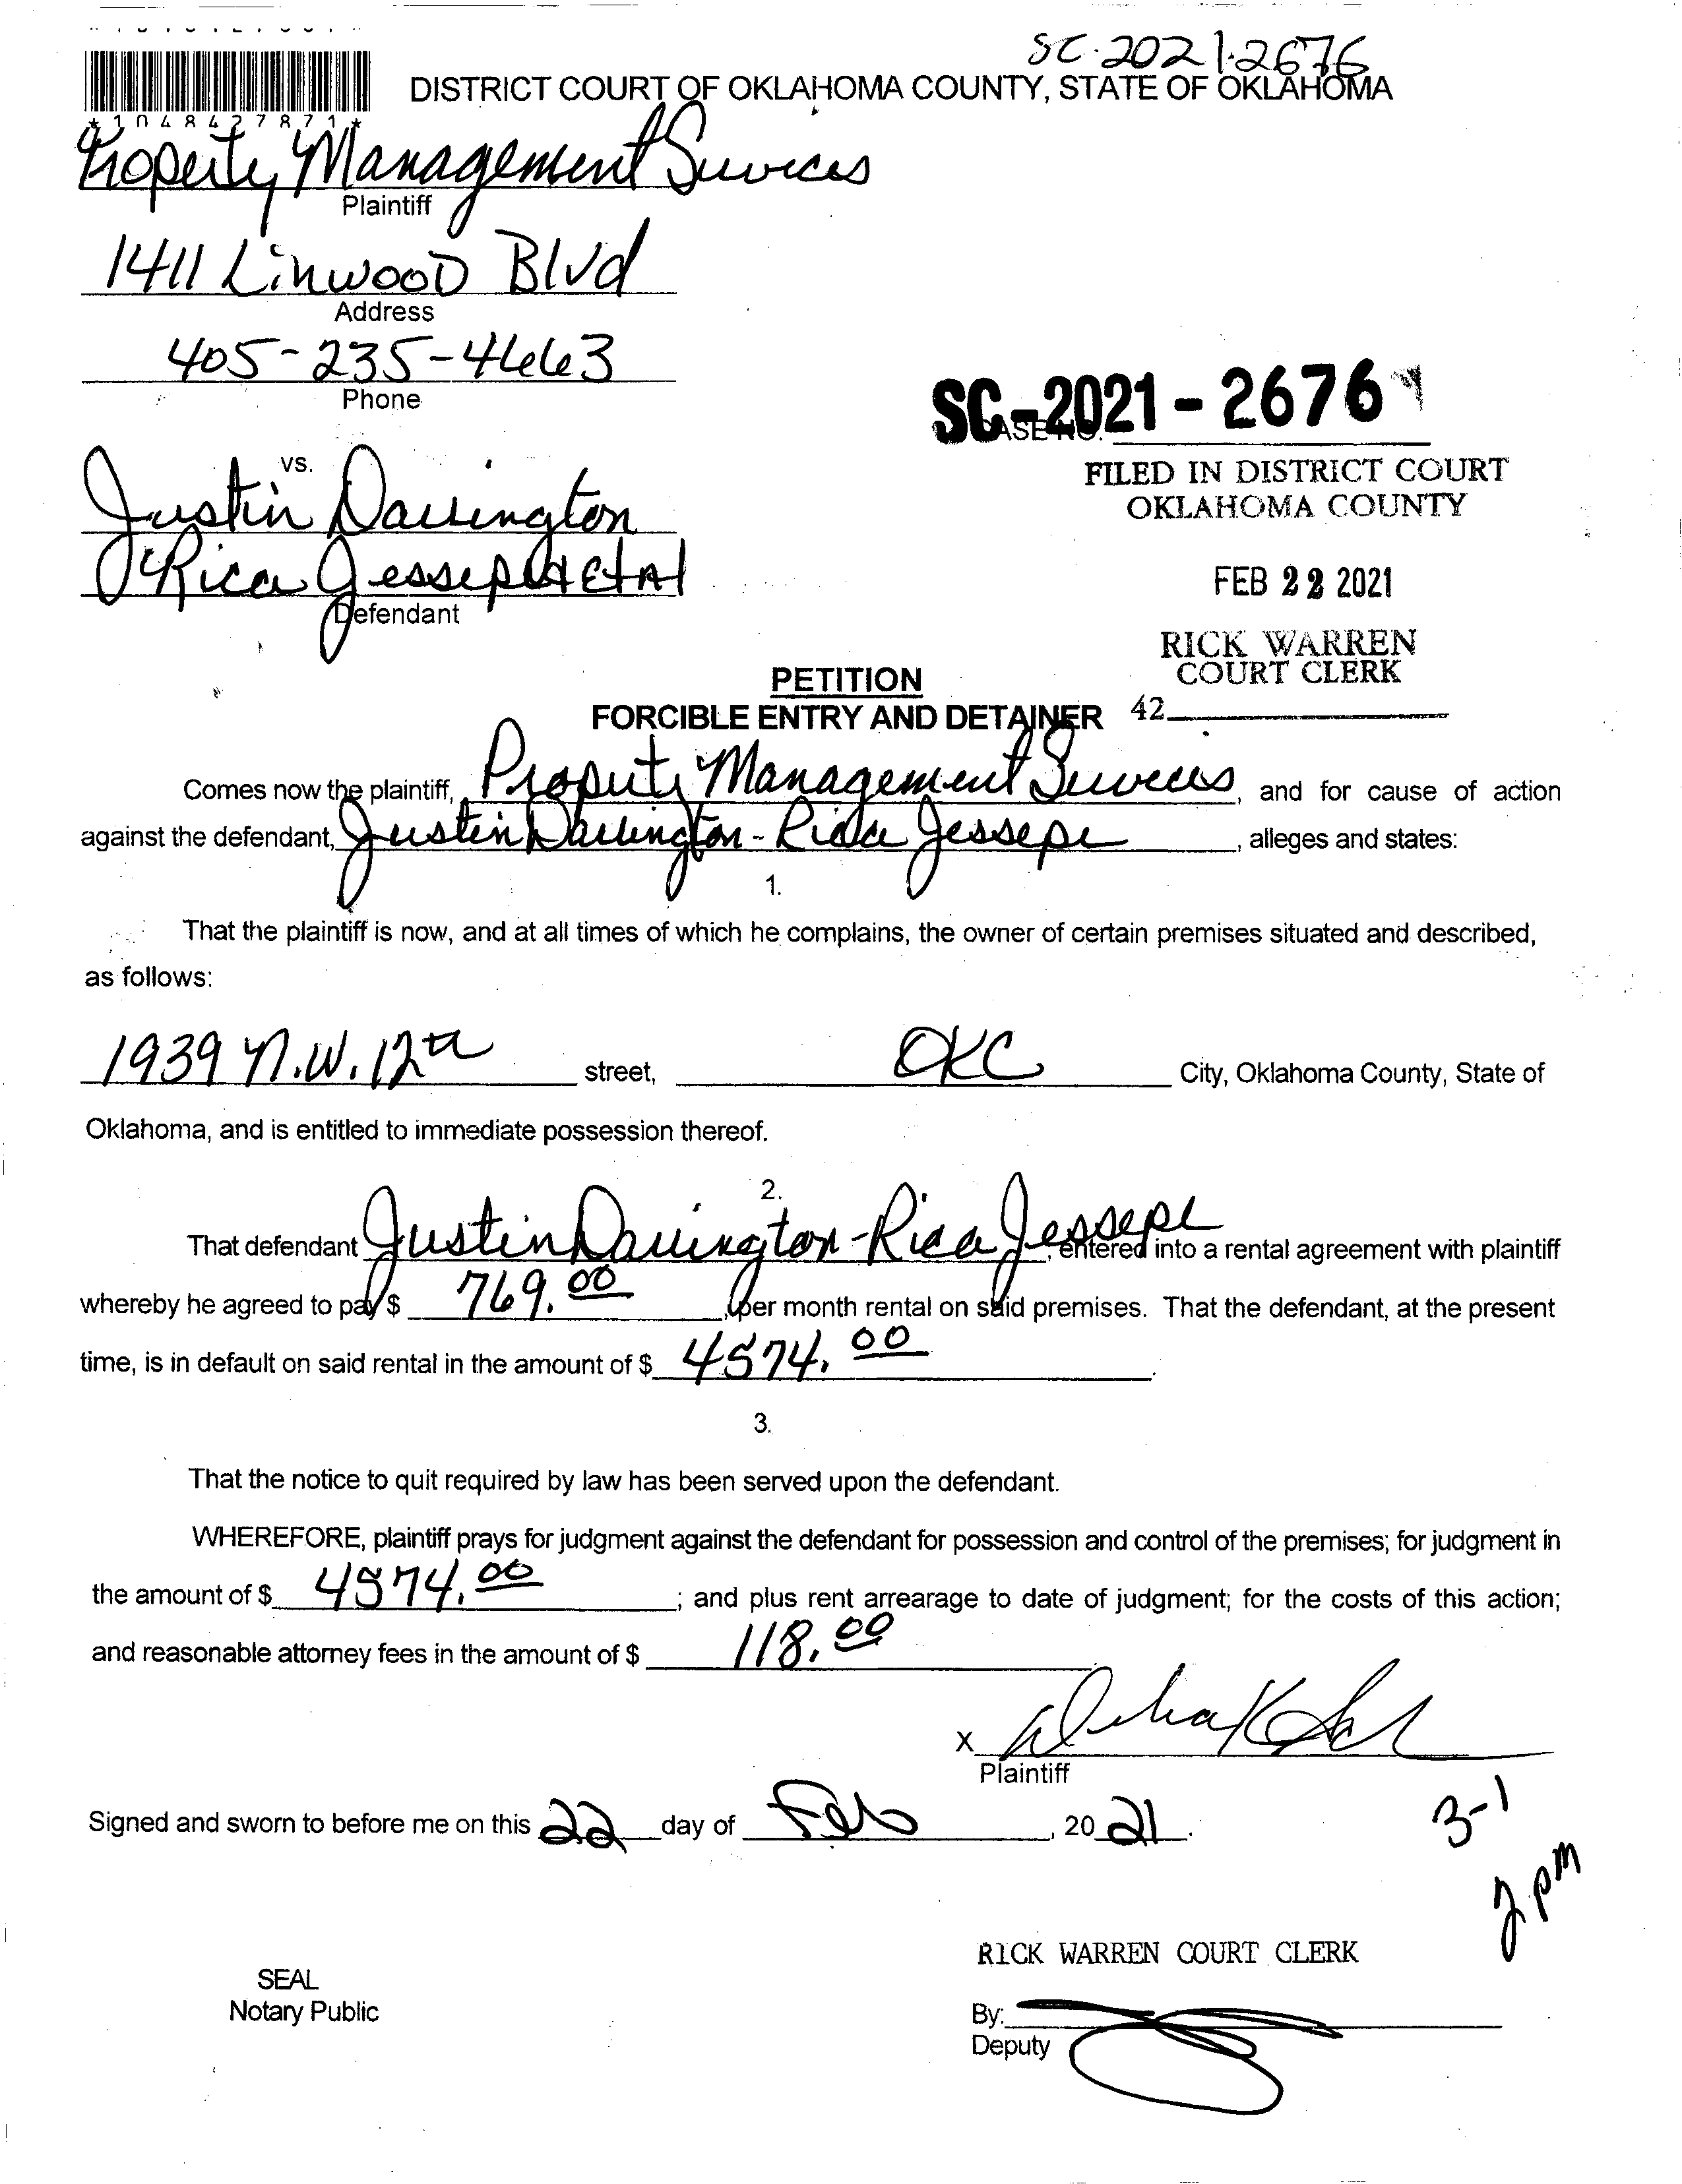 SC-2021-2676
DISTRICT COURT OF OKLAHOMA COUNTY, STATE OF OKLAHOMA
*1048427871*
Property Management Services
Plaintiff
1411 Linwood Blvd
Address
405-235-4663
Phone
SC-2021-2676
CASE NO.
vs.
FILED IN DISTRICT COURT
OKLAHOMA COUNTY
Justin Darrington
Rica Jessepe Et Al
Defendant
FEB 22 2021
RICK WARREN
COURT CLERK
42
PETITION
FORCIBLE ENTRY AND DETAINER
Comes now the plaintiff, Property Management Services, and for cause of action
against the defendant, Justin Darrington - Rica Jessepe, alleges and states:
1.
That the plaintiff is now, and at all times of which he complains, the owner of certain premises situated and described,
as follows:
1939 N.W. 12th street, OKC City, Oklahoma County, State of
Oklahoma, and is entitled to immediate possession thereof.
2.
That defendant Justin Darrington - Rica Jessepe, entered into a rental agreement with plaintiff
whereby he agreed to pay $ 769.00, per month rental on said premises. That the defendant, at the present
time, is in default on said rental in the amount of $ 4574.00.
3.
That the notice to quit required by law has been served upon the defendant.
WHEREFORE, plaintiff prays for judgment against the defendant for possession and control of the premises; for judgment in
the amount of $ 4574.00; and plus rent arrearage to date of judgment; for the costs of this action;
and reasonable attorney fees in the amount of $ 118.00
X
Plaintiff
Signed and sworn to before me on this 22 day of Feb, 20 21.
3-1
2 pm
RICK WARREN COURT CLERK
SEAL
Notary Public
By:
Deputy